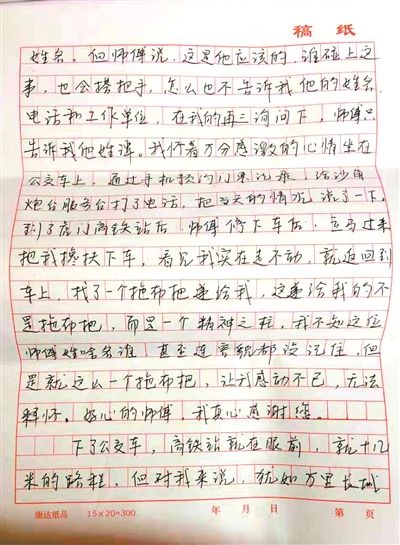 稿 纸
姓名。但师傅说，这是他应该的，谁碰上这
事，也会搭把手，怎么也不告诉我他的姓名
电话和工作单位，在我的再三询问下，师傅只
告诉我他姓谭。我怀着万分感激的心情坐在
公交车上，通过手机预约门票记录，给沙角
炮台服务台打了电话，把当天的情况说了一下。
到了虎门高铁站后，师傅停下车后，立马过来
把我搀扶下车，看见我实在走不动，就返回到
车上，找了一个拖布把递给我，这递给我的不
是拖布把，而是一个精神之柱，我不知这位
师傅姓啥名谁，甚至连容貌都没记住，但
是就这么一个拖布把，让我感动不已，无法
释怀。好心的师傅，我真心感谢您。
下了公交车，高铁站就在眼前，就十几
米的路程，但对我来说，犹如万里长城
康达纸品 15×20=300 年 月 日 第 页